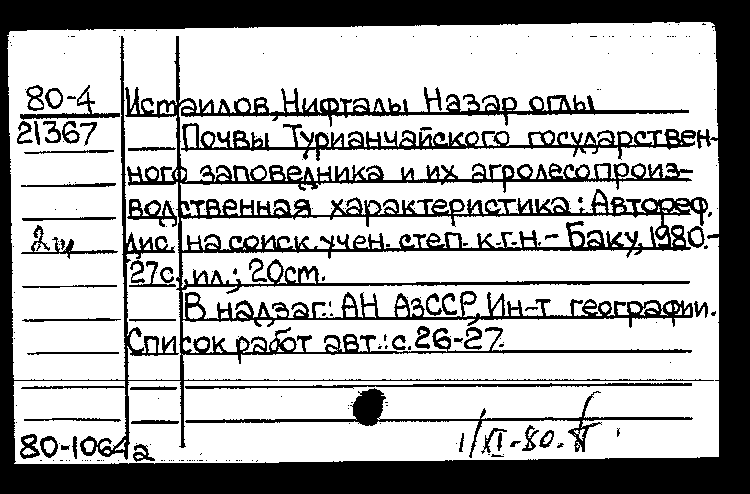 80-4 Истаилов, Нифталы Назар оглы
21367 Почвы Турианчайского государствен-
ного заповедника и их агролесопроиз-
водственная характеристика: Автореф.
2щ дис. на соиск. учен. степ. к.г.н. - Баку, 1980.-
27с., ил.; 20см.
В надзаг.: АН АзССР, Ин-т географии.
Список работ авт.: с.26-27.
80-1064а 1/XI-80.